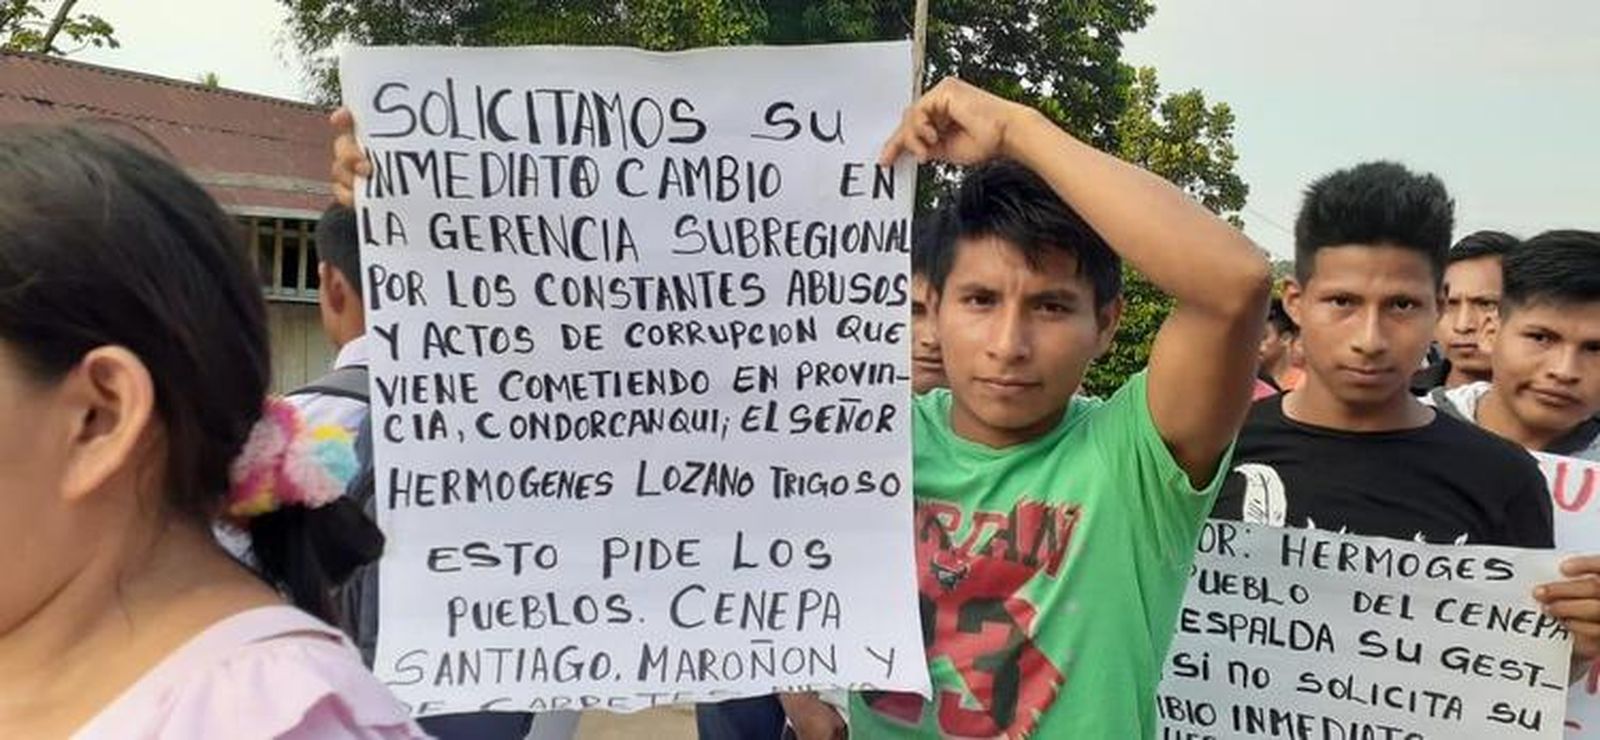 SOLICITAMOS SU
INMEDIATO CAMBIO EN
LA GERENCIA SUBREGIONAL
POR LOS CONSTANTES ABUSOS
Y ACTOS DE CORRUPCION QUE
VIENE COMETIENDO EN PROVIN-
CIA, CONDORCANQUI; EL SEÑOR
HERMOGENES LOZANO TRIGOSO
ESTO PIDE LOS
PUEBLOS. CENEPA
SANTIAGO. MAROÑON Y
DE CARRETE
23
OR: HERMOGES
PUEBLO DEL CENEPA
ESPALDA SU GEST-
SI NO SOLICITA SU
BIO INMEDIATO
U